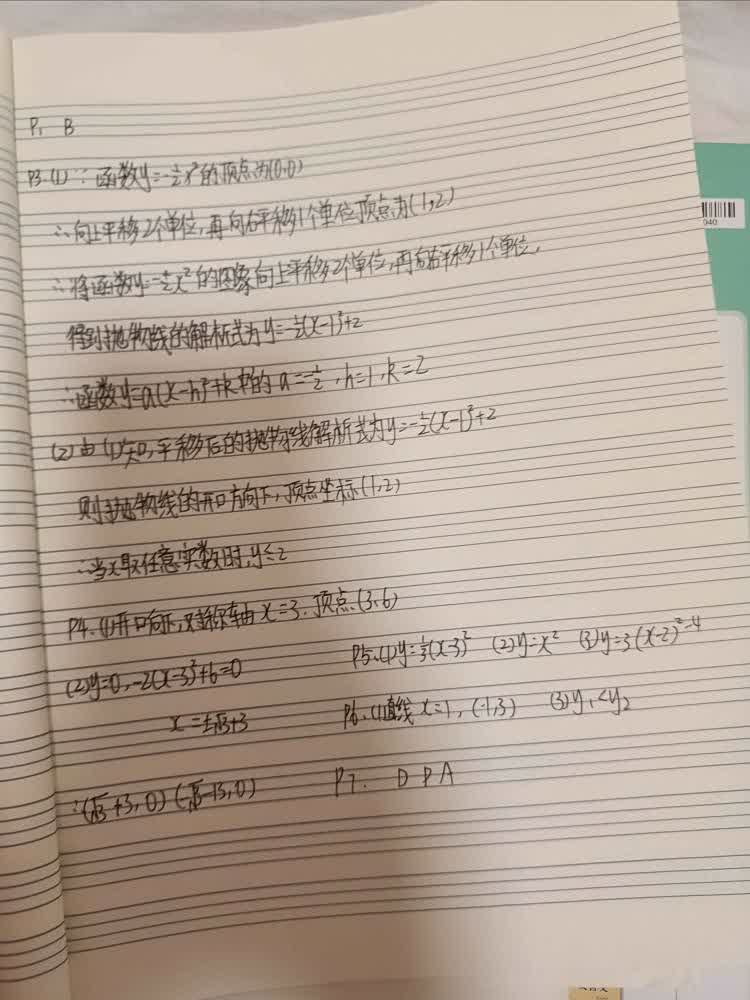 P1 B
P3.(1)∵函数y=-½x²的顶点为(0,0)
∴向上平移2个单位,再向右平移1个单位顶点为(1,2)
∴将函数y=-½x²的图象向上平移2个单位,再向右平移1个单位,
得到抛物线的解析式为y=-½(x-1)²+2
∴函数y=a(x-h)²+k中的a=-½,h=1,k=2
(2)由(1)知,平移后的抛物线解析式为y=-½(x-1)²+2
则抛物线的开口方向下,顶点坐标(1,2)
∴当x取任意实数时,y≤2
P4.(1)开口向下,对称轴x=3.顶点(3,6)
(2)y=0,-2(x-3)²+6=0
x=±√3+3
∴(√3+3,0)(-√3+3,0)
P5.(1)y=⅓(x-3)² (2)y=x² (3)y=3(x-2)²-4
P6.(1)直线x=1,(-1,3) (3)y₁<y₂
P7. D P A
040